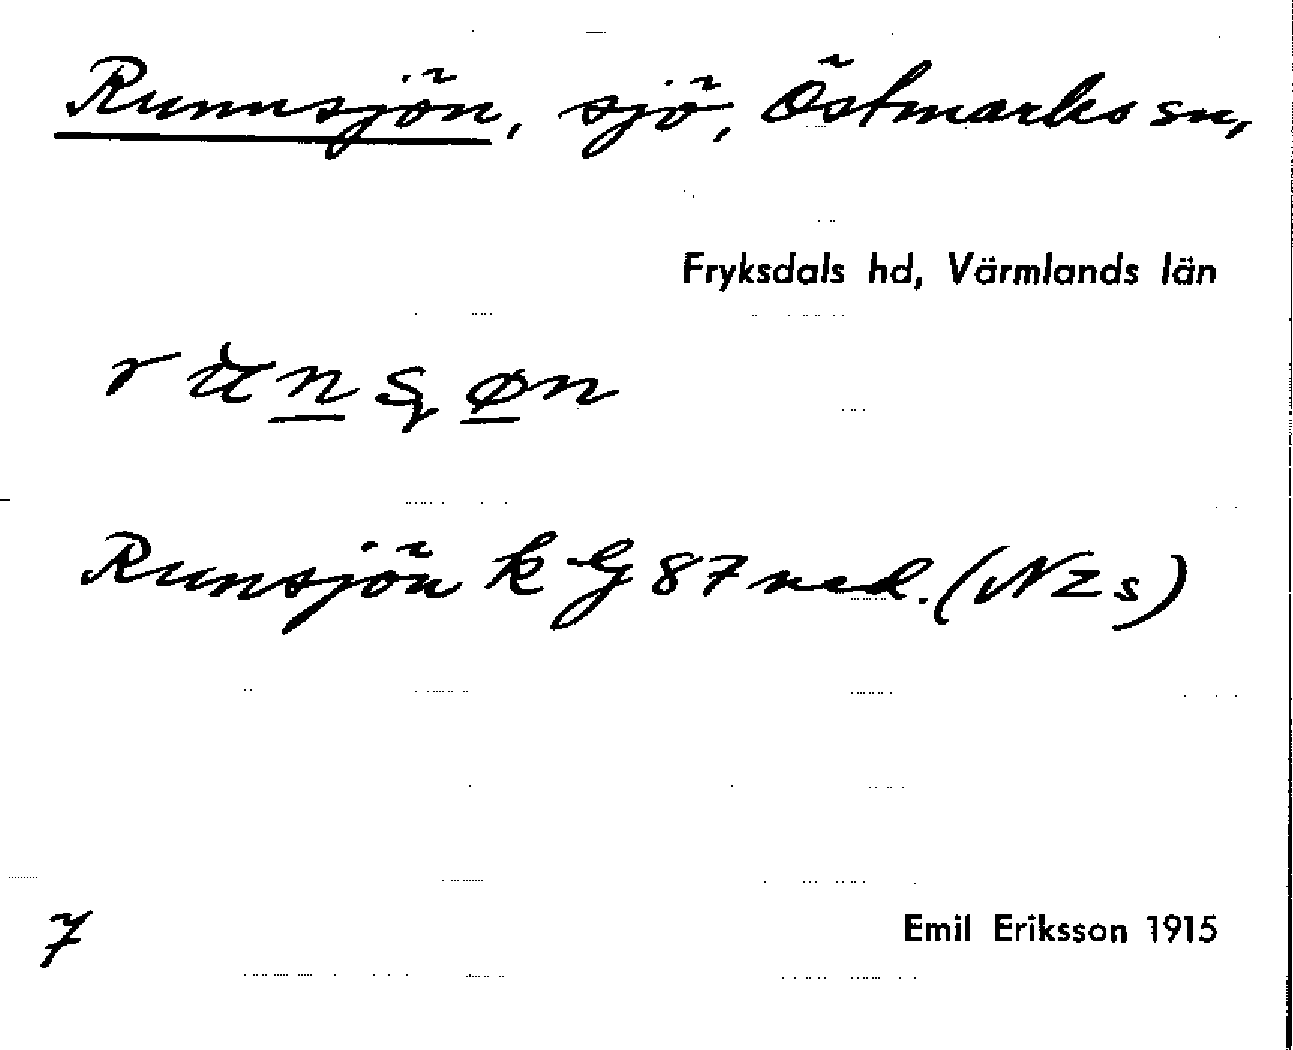 Runnsjön, sjö, Östmarks sn,
Fryksdals hd, Värmlands län
Runsjön k G 87 ned. (NZs)
7
Emil Eriksson 1915